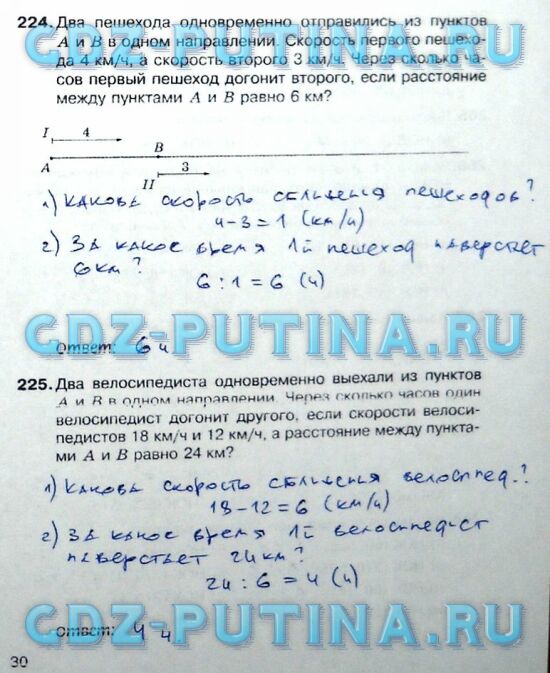 224. Два пешехода одновременно отправились из пунктов
А и В в одном направлении. Скорость первого пешехо-
да 4 км/ч, а скорость второго 3 км/ч. Через сколько ча-
сов первый пешеход догонит второго, если расстояние
между пунктами А и В равно 6 км?
GDZ-PUTINA.RU
I 4
B
A
3
II
1) Какова скорость сближения пешеходов?
4-3=1 (км/ч)
2) За какое время 1й пешеход наверстает
6 км?
6 : 1 = 6 (ч)
GDZ-PUTINA.RU
Ответ: 6 ч
225. Два велосипедиста одновременно выехали из пунктов
А и В в одном направлении. Через сколько часов один
велосипедист догонит другого, если скорости велоси-
педистов 18 км/ч и 12 км/ч, а расстояние между пункта-
ми А и В равно 24 км?
1) Какова скорость сближения велосипед.?
18-12=6 (км/ч)
2) За какое время 1й велосипедист
наверстает 24 км?
24 : 6 = 4 (ч)
GDZ-PUTINA.RU
Ответ: 4 ч
30